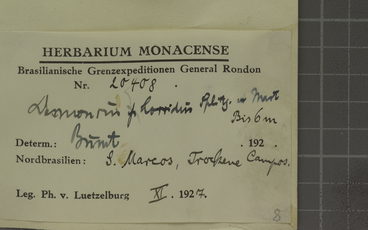 HERBARIUM MONACENSE
Brasilianische Grenzexpeditionen General Rondon
Nr. 20408.
Desmoncus horridus Splitg. et Mart
Bis 6m
Determ.: Burret . 192 .
Nordbrasilien: S. Marcos, Trockene Campos.
Leg. Ph. v. Luetzelburg XI. 1927.
8